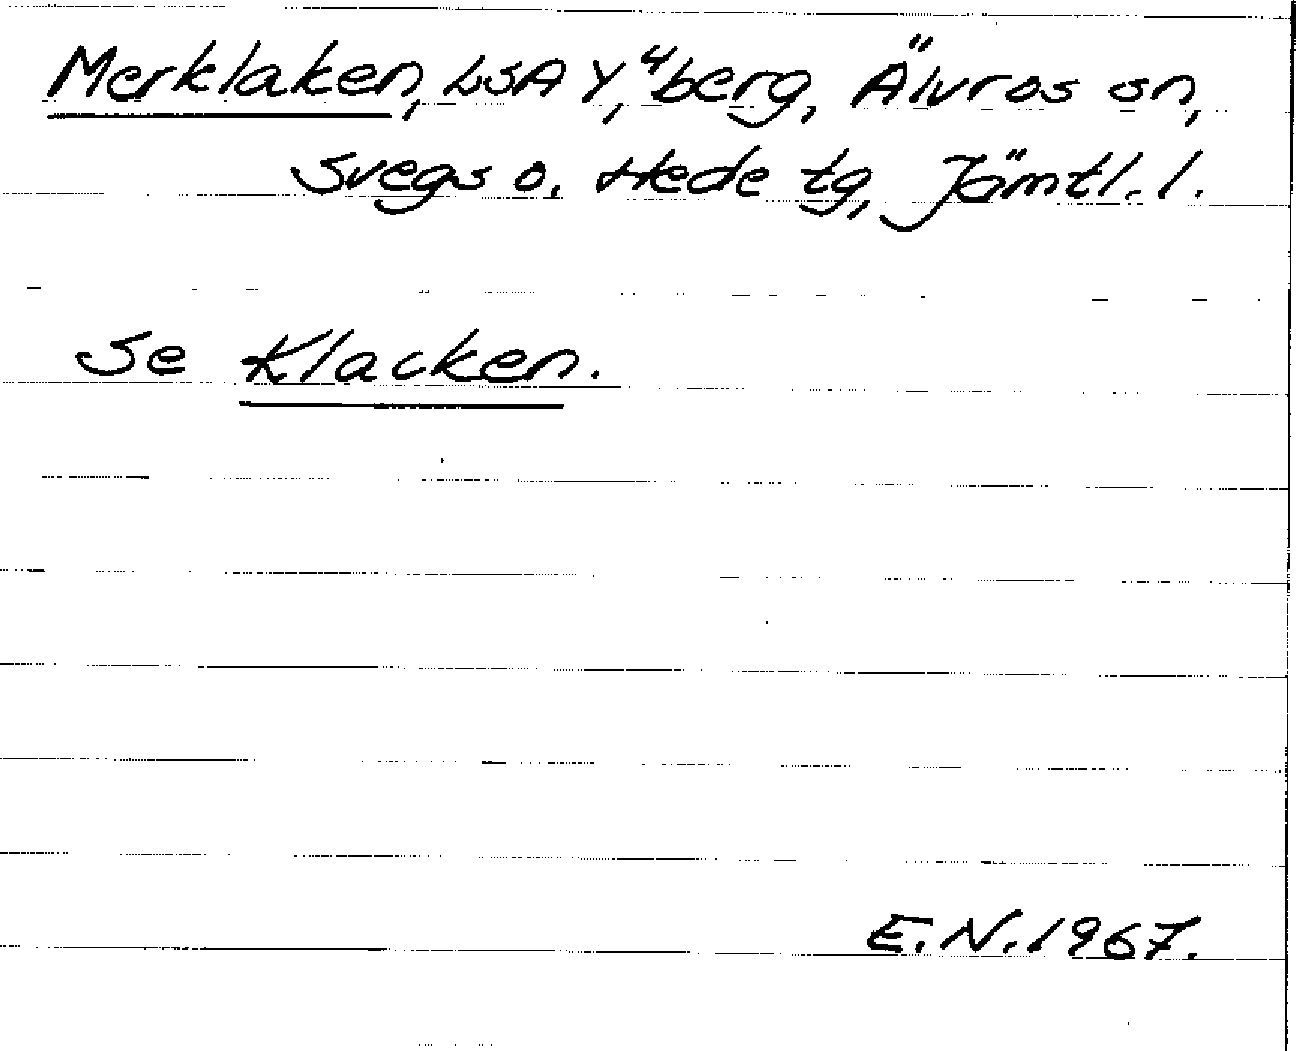 Merklaken, LSA Y, 4 berg, Älvros sn,
Svegs o. Hede tg, Jämtl. l.
Se Klacken.
E.N. 1967.